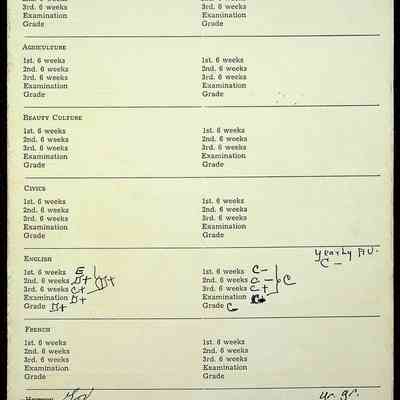 3rd. 6 weeks 3rd. 6 weeks
Examination Examination
Grade Grade
AGRICULTURE
1st. 6 weeks 1st. 6 weeks
2nd. 6 weeks 2nd. 6 weeks
3rd. 6 weeks 3rd. 6 weeks
Examination Examination
Grade Grade
BEAUTY CULTURE
1st. 6 weeks 1st. 6 weeks
2nd. 6 weeks 2nd. 6 weeks
3rd. 6 weeks 3rd. 6 weeks
Examination Examination
Grade Grade
CIVICS
1st. 6 weeks 1st. 6 weeks
2nd. 6 weeks 2nd. 6 weeks
3rd. 6 weeks 3rd. 6 weeks
Examination Examination
Grade Grade
Yearly AV.
C-
ENGLISH
1st. 6 weeks E 1st. 6 weeks C-
2nd. 6 weeks D+ D+ 2nd. 6 weeks C- C
3rd. 6 weeks C+ 3rd. 6 weeks C+
Examination D+ Examination
Grade D+ Grade C
FRENCH
1st. 6 weeks 1st. 6 weeks
2nd. 6 weeks 2nd. 6 weeks
3rd. 6 weeks 3rd. 6 weeks
Examination Examination
Grade Grade